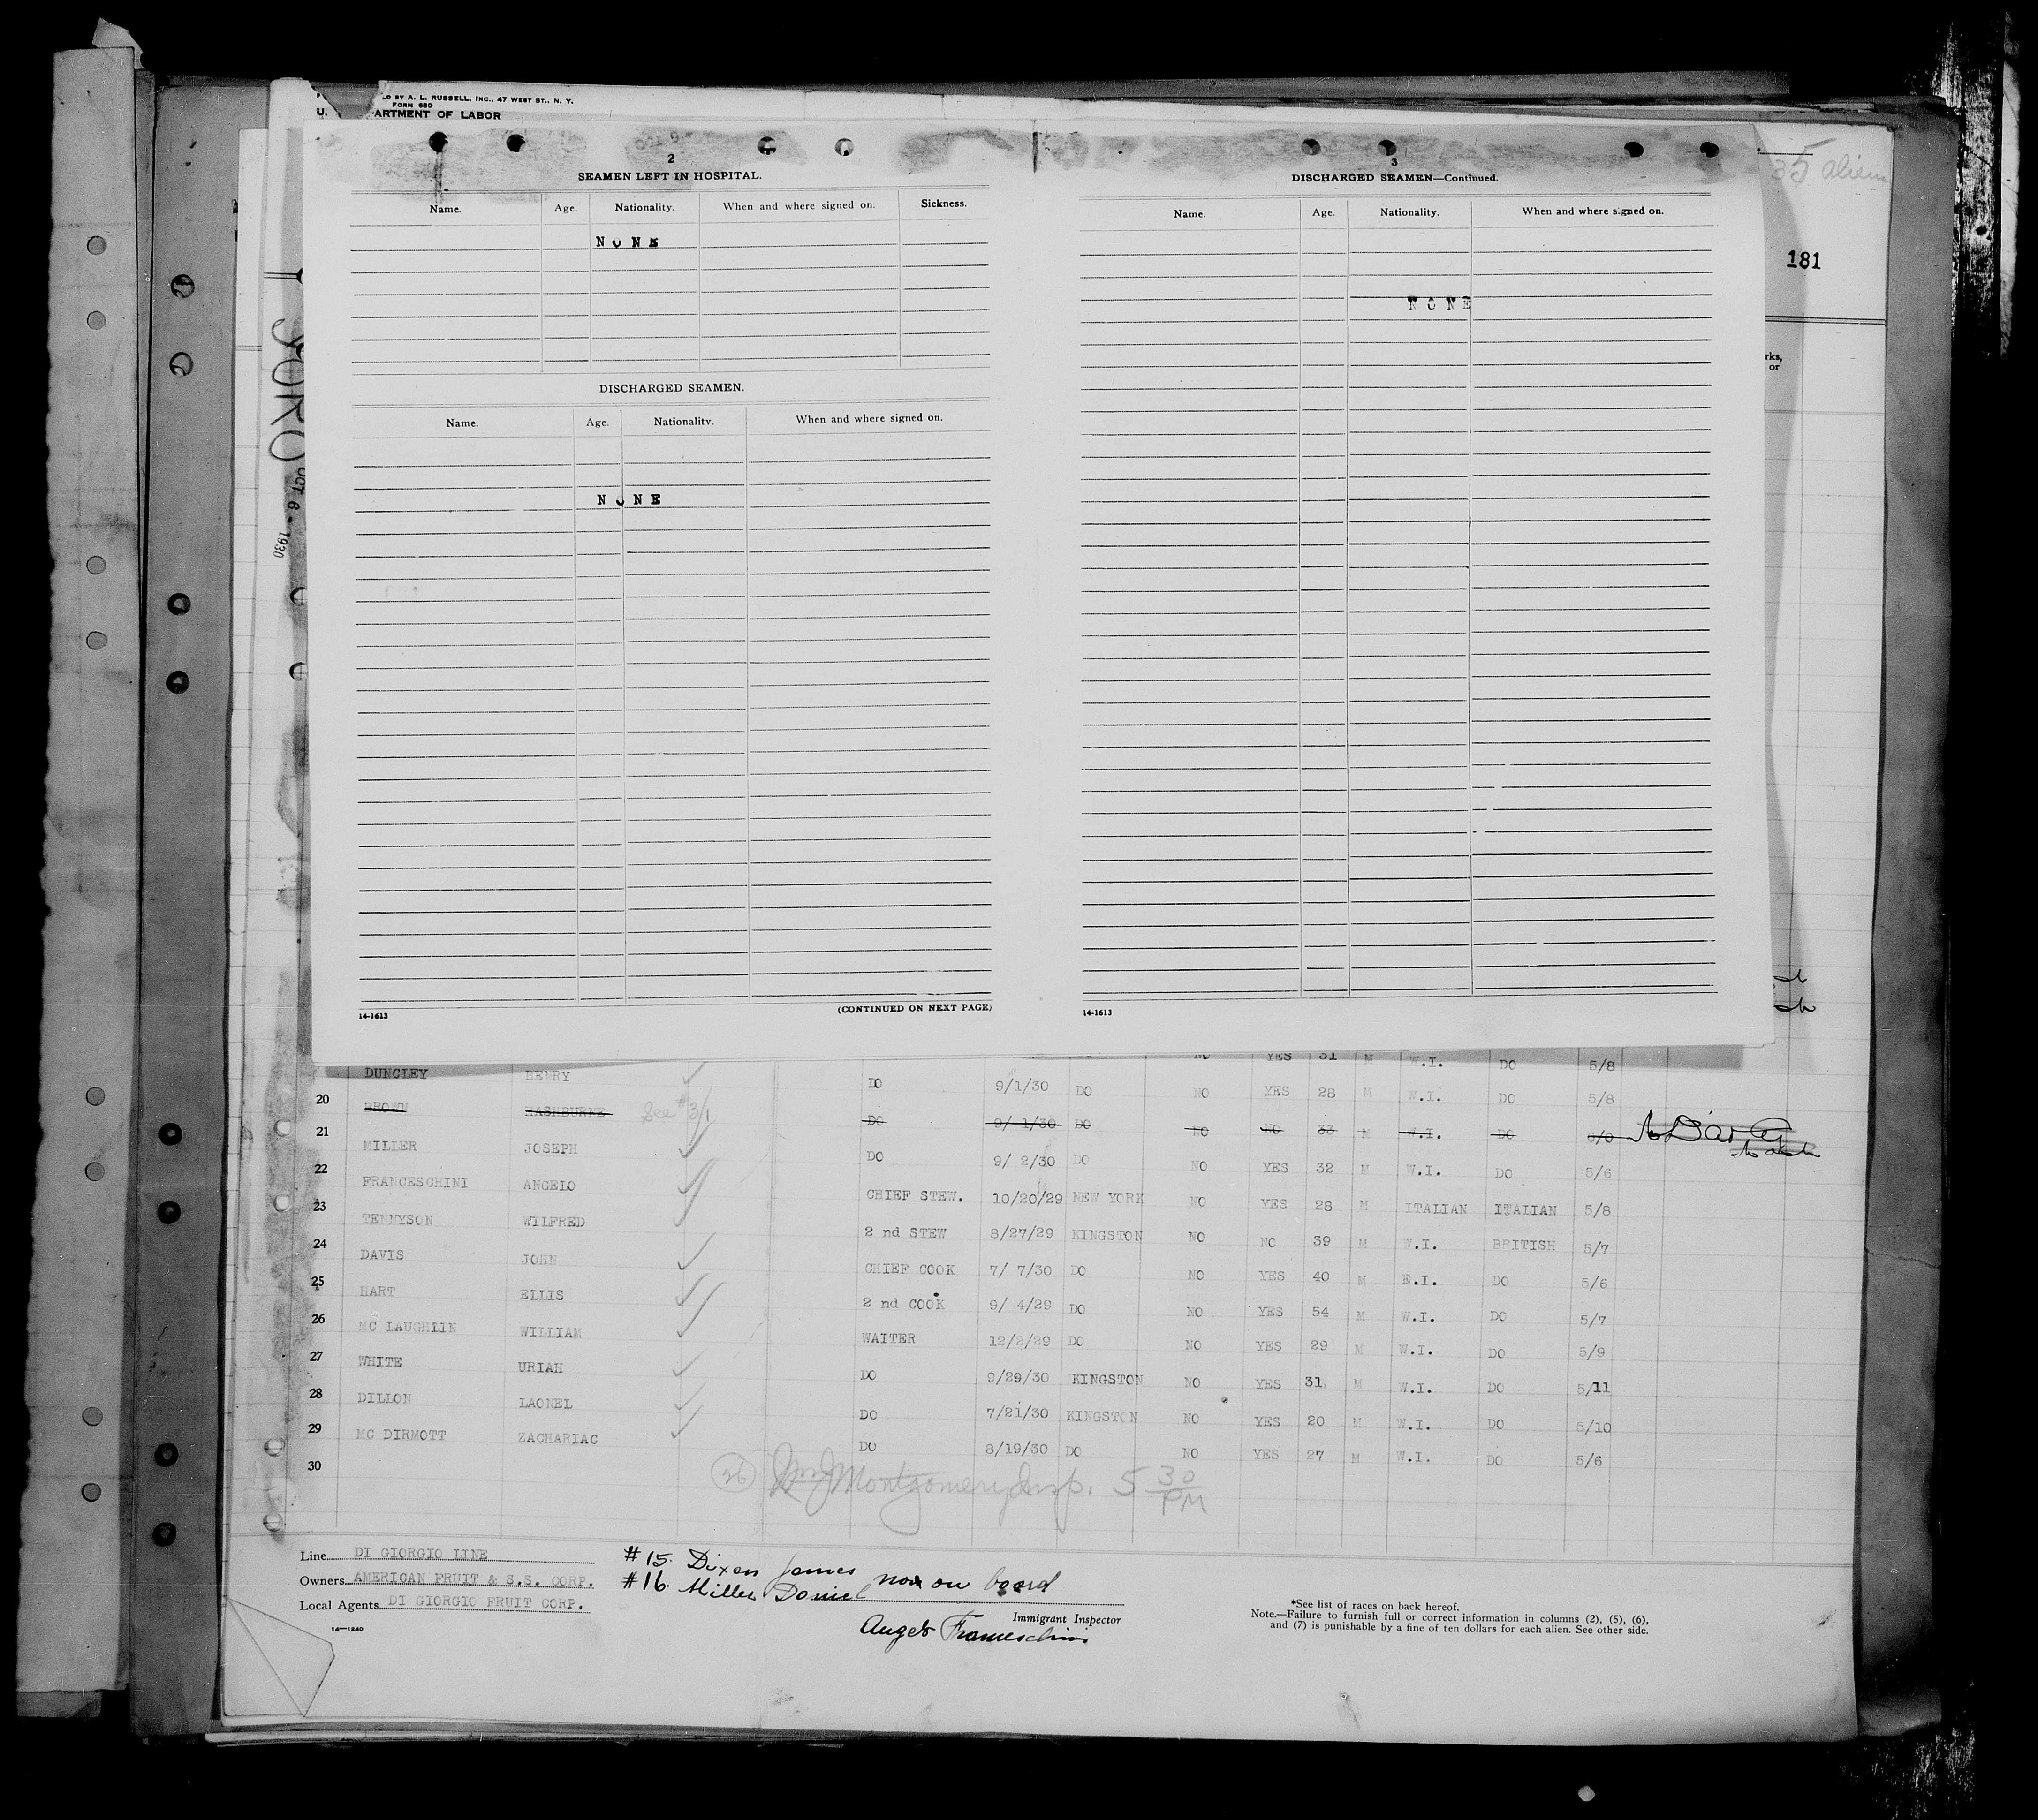 D BY A. L. RUSSELL, INC., 47 WEST ST., N. Y.
FORM 680
U. ARTMENT OF LABOR
35 aliens
181
rks,
or
OCT 6 - 1930
2
SEAMEN LEFT IN HOSPITAL.
Name. Age. Nationality. When and where signed on. Sickness.
NONE
DISCHARGED SEAMEN.
Name. Age. Nationality. When and where signed on.
NONE
14-1613 (CONTINUED ON NEXT PAGE)
3
DISCHARGED SEAMEN—Continued.
Name. Age. Nationality. When and where signed on.
NONE
14-1613
NO YES 31 M W.I. DO 5/8
DUNCLEY HENRY DO 9/1/30 DO NO YES 28 M W.I. DO 5/8
20 BROWN WASHBURNE See #3/1 DO 9/ 1/30 DO NO NO 33 M W.I. DO
21 MILLER JOSEPH DO 9/ 2/30 DO NO YES 32 M W.I. DO 5/6
22 FRANCESCHINI ANGELO CHIEF STEW. 10/20/29 NEW YORK NO YES 28 M ITALIAN ITALIAN 5/8
23 TENNYSON WILFRED 2 nd STEW 8/27/29 KINGSTON NO NO 39 M W.I. BRITISH 5/7
24 DAVIS JOHN CHIEF COOK 7/ 7/30 DO NO YES 40 M E.I. DO 5/6
25 HART ELLIS 2 nd COOK 9/ 4/29 DO NO YES 54 M W.I. DO 5/7
26 MC LAUGHLIN WILLIAM WAITER 12/2/29 DO NO YES 29 M W.I. DO 5/9
27 WHITE URIAH DO 9/29/30 KINGSTON NO YES 31 M W.I. DO 5/11
28 DILLON LAONEL DO 7/21/30 KINGSTON NO YES 20 M W.I. DO 5/10
29 MC DIRMOTT ZACHARIAC DO 8/19/30 DO NO YES 27 M W.I. DO 5/6
30
26 Montgomery Insp. 5 30 PM
Line DI GIORGIO LINE
Owners AMERICAN FRUIT & S.S. CORP.
Local Agents DI GIORGIO FRUIT CORP.
14—1240
#15. Dixon James not on board
#16. Miller Daniel
Immigrant Inspector
Angelo Franceschini
*See list of races on back hereof.
Note.—Failure to furnish full or correct information in columns (2), (5), (6),
and (7) is punishable by a fine of ten dollars for each alien. See other side.